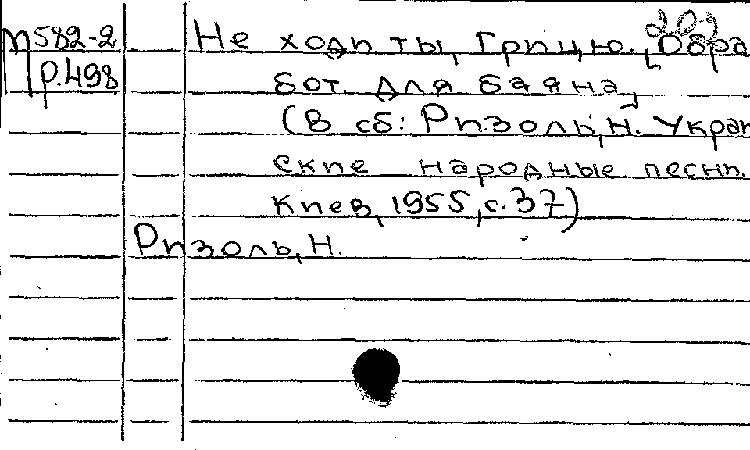 П582-2
Р.498
20-2
Не ходи ты, Грицю. [Обра
бот. для баяна]
(В сб: Ризоль, Н. Украи
ские народные песни.
Киев, 1955, с. 37)
Ризоль, Н.